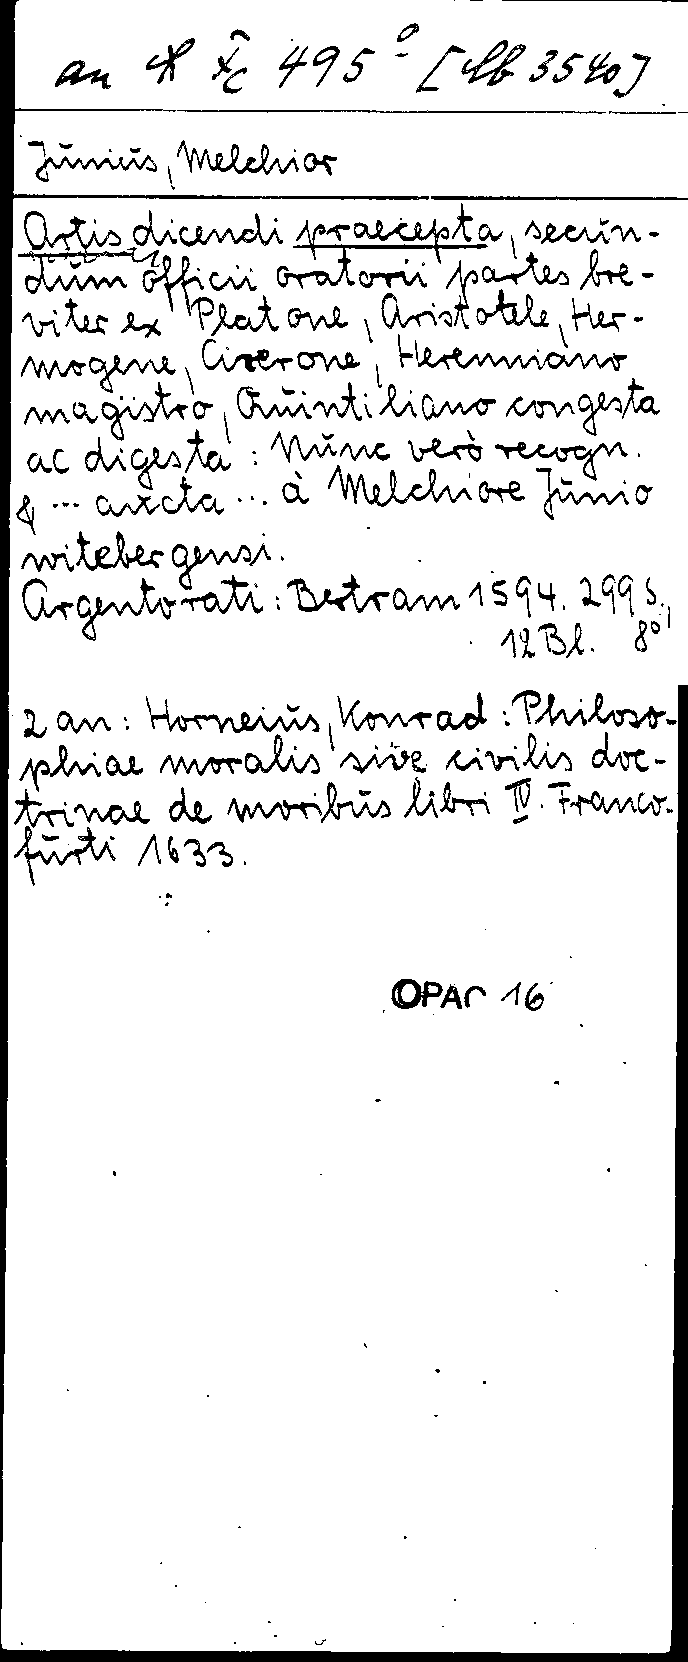 an Xc 495° [Ab 3540]
Junius, Melchior
Artis dicendi praecepta, secun-
dum officii oratorii partes bre-
viter ex Platone, Aristotele, Her-
mogene, Cicerone, Herenniano
magistro, Quintiliano congesta
ac digesta : Nunc verò recogn.
& ... aucta ... à Melchiore Junio
witebergensi.
Argentorati : Bertram 1594. 299 S.,
12 Bl. 8°
2 an : Horneius, Konrad : Philoso-
phiae moralis sive civilis doc-
trinae de moribus libri IV. Franco-
furti 1633.
OPAC 16